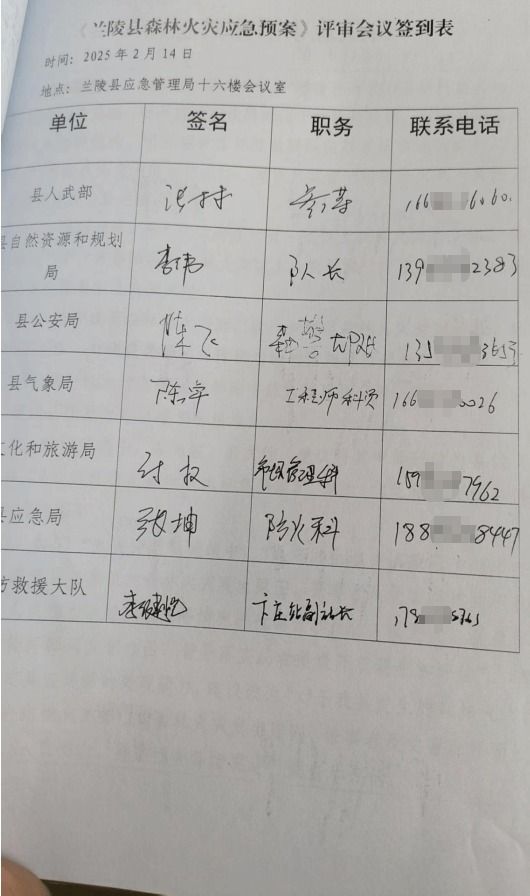 《兰陵县森林火灾应急预案》评审会议签到表
时间：2025年2月14日
地点：兰陵县应急管理局十六楼会议室
单位 签名 职务 联系电话
县人武部 166 6060
县自然资源和规划局 李伟 队长 139 2383
县公安局 陈飞 大队长
县气象局 陈军 工程师 科员 166 0026
文化和旅游局 市场管理科 159 7962
县应急局 张坤 防火科 188 8447
防救援大队 卞庄站副站长